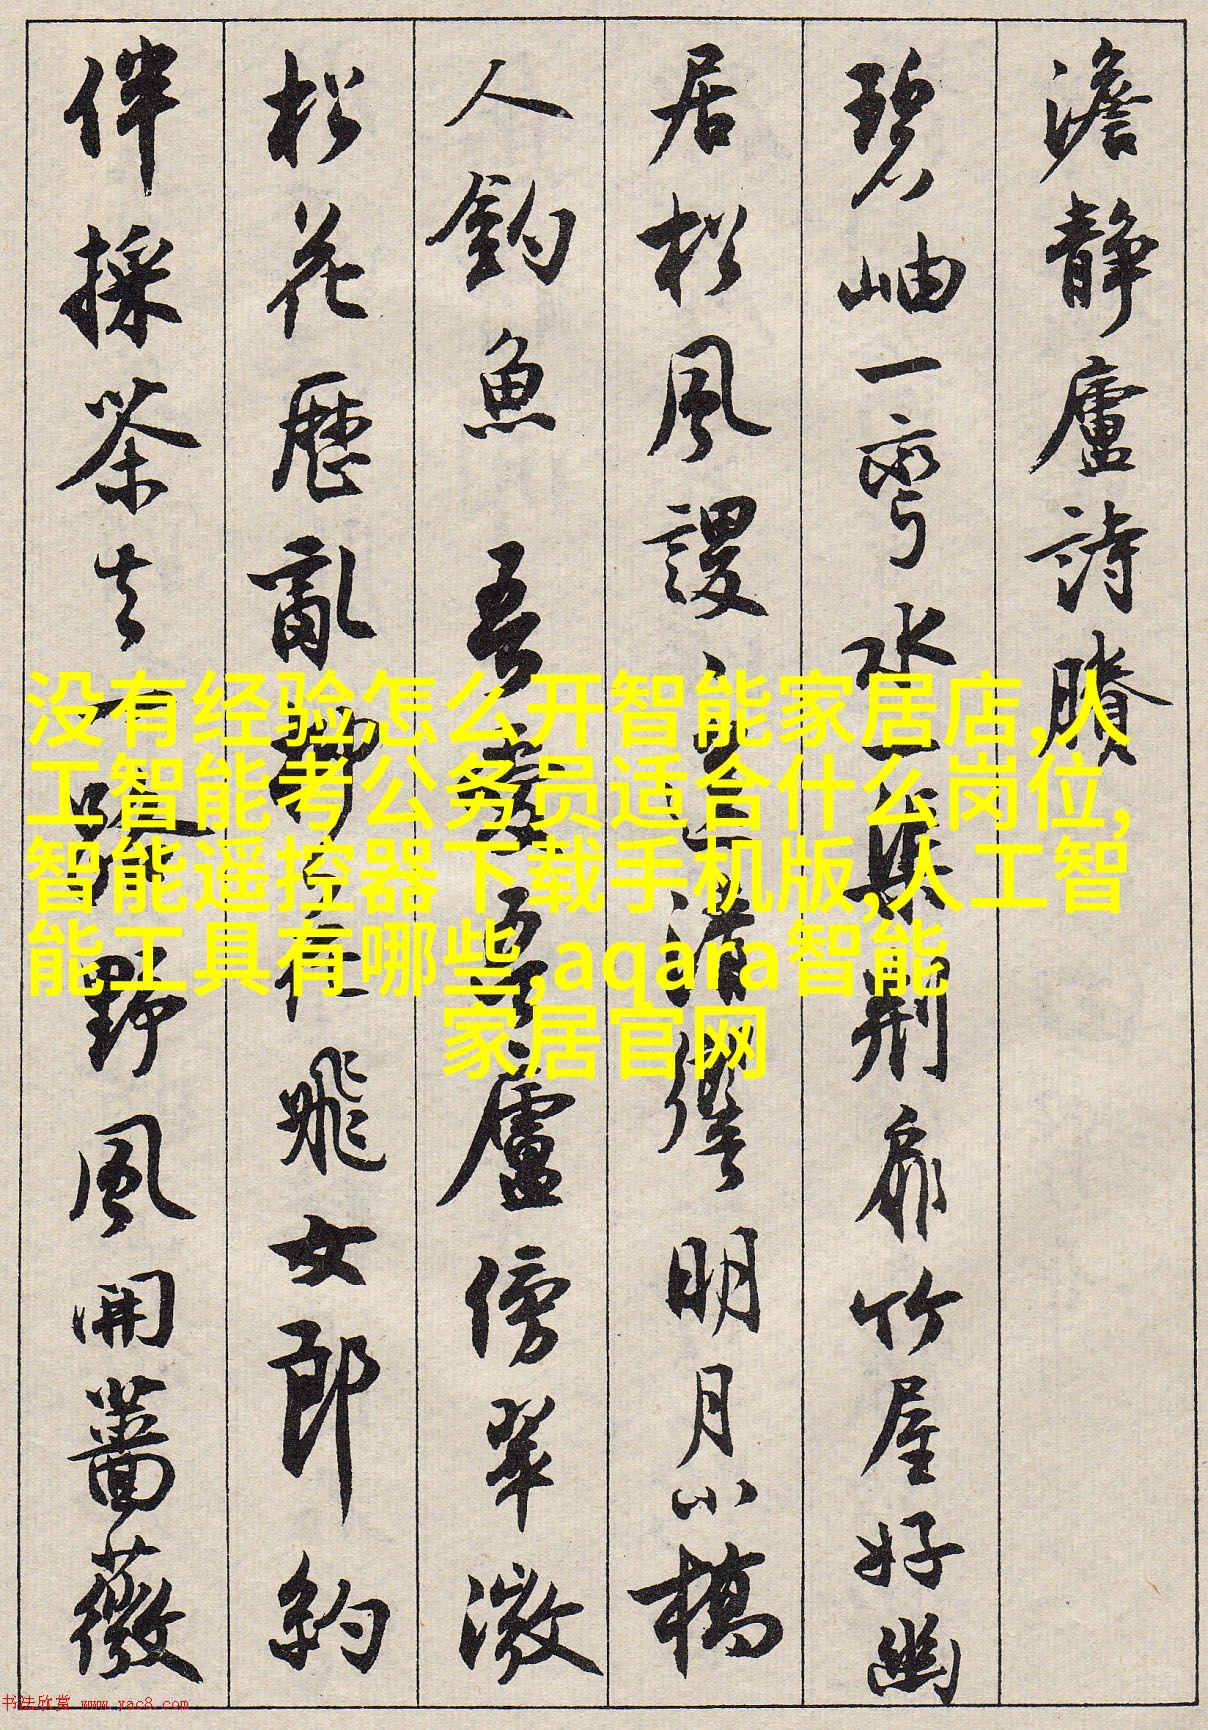 澹静廬詩賸
碧岫一彎水一渠荆扉竹屋好幽
居松風謖謖清貧明月小橋
人釣魚 吾愛吾廬傍翠微
松花歷亂静在飛女郎約
伴採茶去一路野風開薔薇
没有经验怎么开智能家居店,人
工智能考公务员适合什么岗位,
智能遥控器下载手机版,人工智
能工具有哪些,aqara智能
家居官网
书法欣赏 www.yac8.com